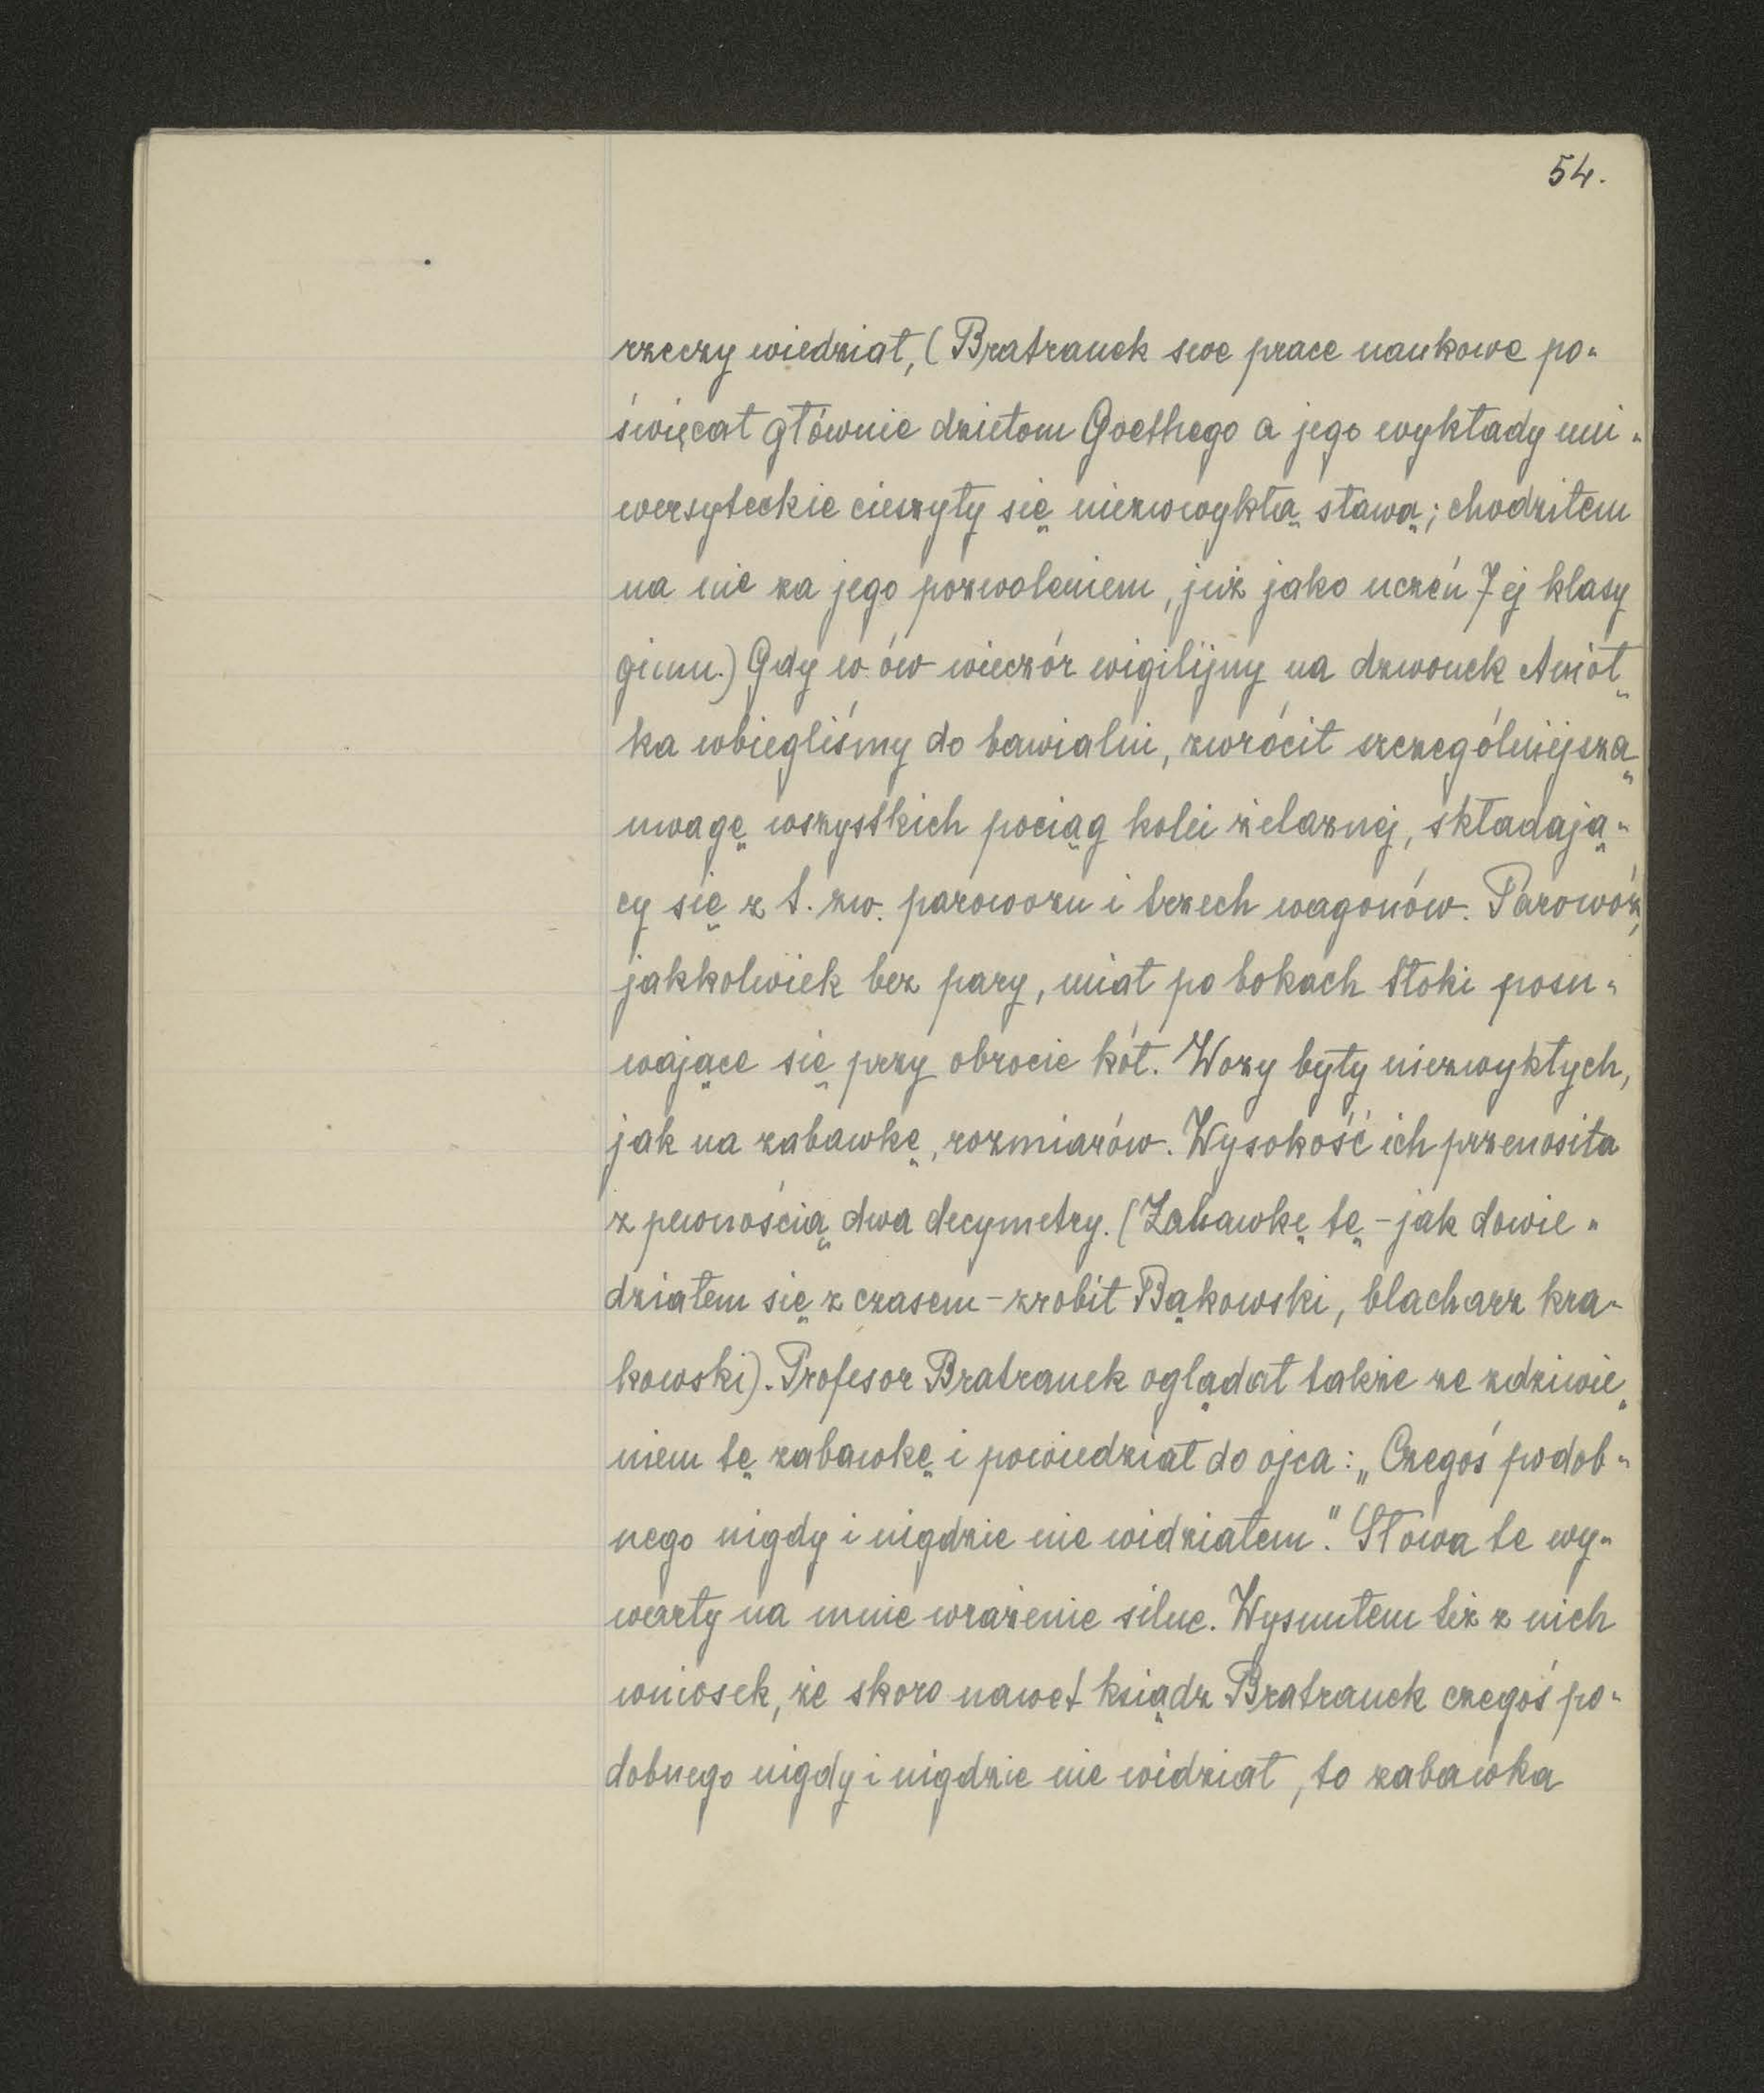 54.
rzeczy wiedział, (Bratranek swe prace naukowe po-
święcał głównie dziełom Goethego a jego wykłady uni-
wersyteckie cieszyły się niezwwykłą sławą; chodziłem
na nie za jego pozwoleniem, już jako uczeń 7ej klasy
gimn.) Gdy w ów wieczór wigilijny na dzwonek Anioł-
ka wbiegliśmy do bawialni, zwrócił szczególniejszą
uwagę wszystkich pociąg kolei żelaznej, składają-
cy się z t. zw. parowozu i trzech wagonów. Parowóz,
jakkolwiek bez pary, miał po bokach tłoki posu-
wające się przy obrocie kół. Wozy były niezwykłych,
jak na zabawkę, rozmiarów. Wysokość ich przenosiła
z pewnością dwa decymetry. (Zabawkę tę - jak dowie-
działem się z czasem - zrobił Bąkowski, blacharz kra-
kowski). Profesor Bratranek oglądał także ze zdziwie-
niem tę zabawkę i powiedział do ojca: „Czegoś podob-
nego nigdy i nigdzie nie widziałem." Słowa te wy-
warły na mnie wrażenie silne. Wysnułem też z nich
wniosek, że skoro nawet ksiądz Bratranek czegoś po-
dobnego nigdy i nigdzie nie widział, to zabawka